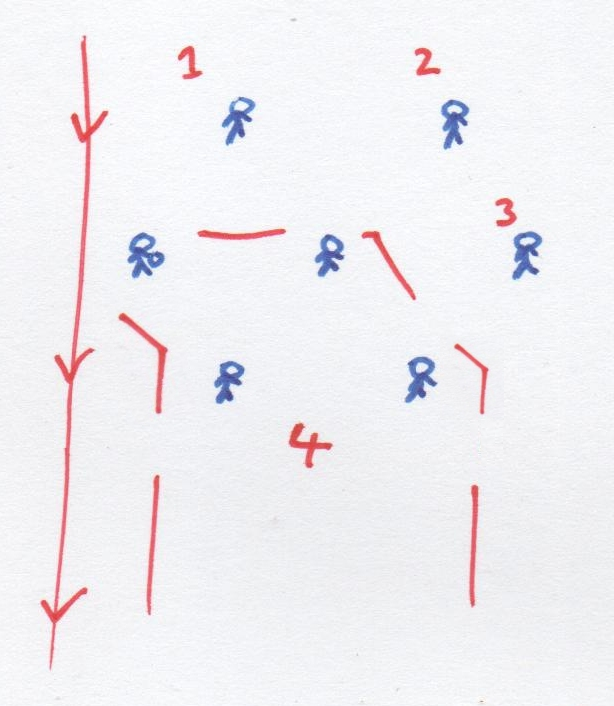 1 2
3
4